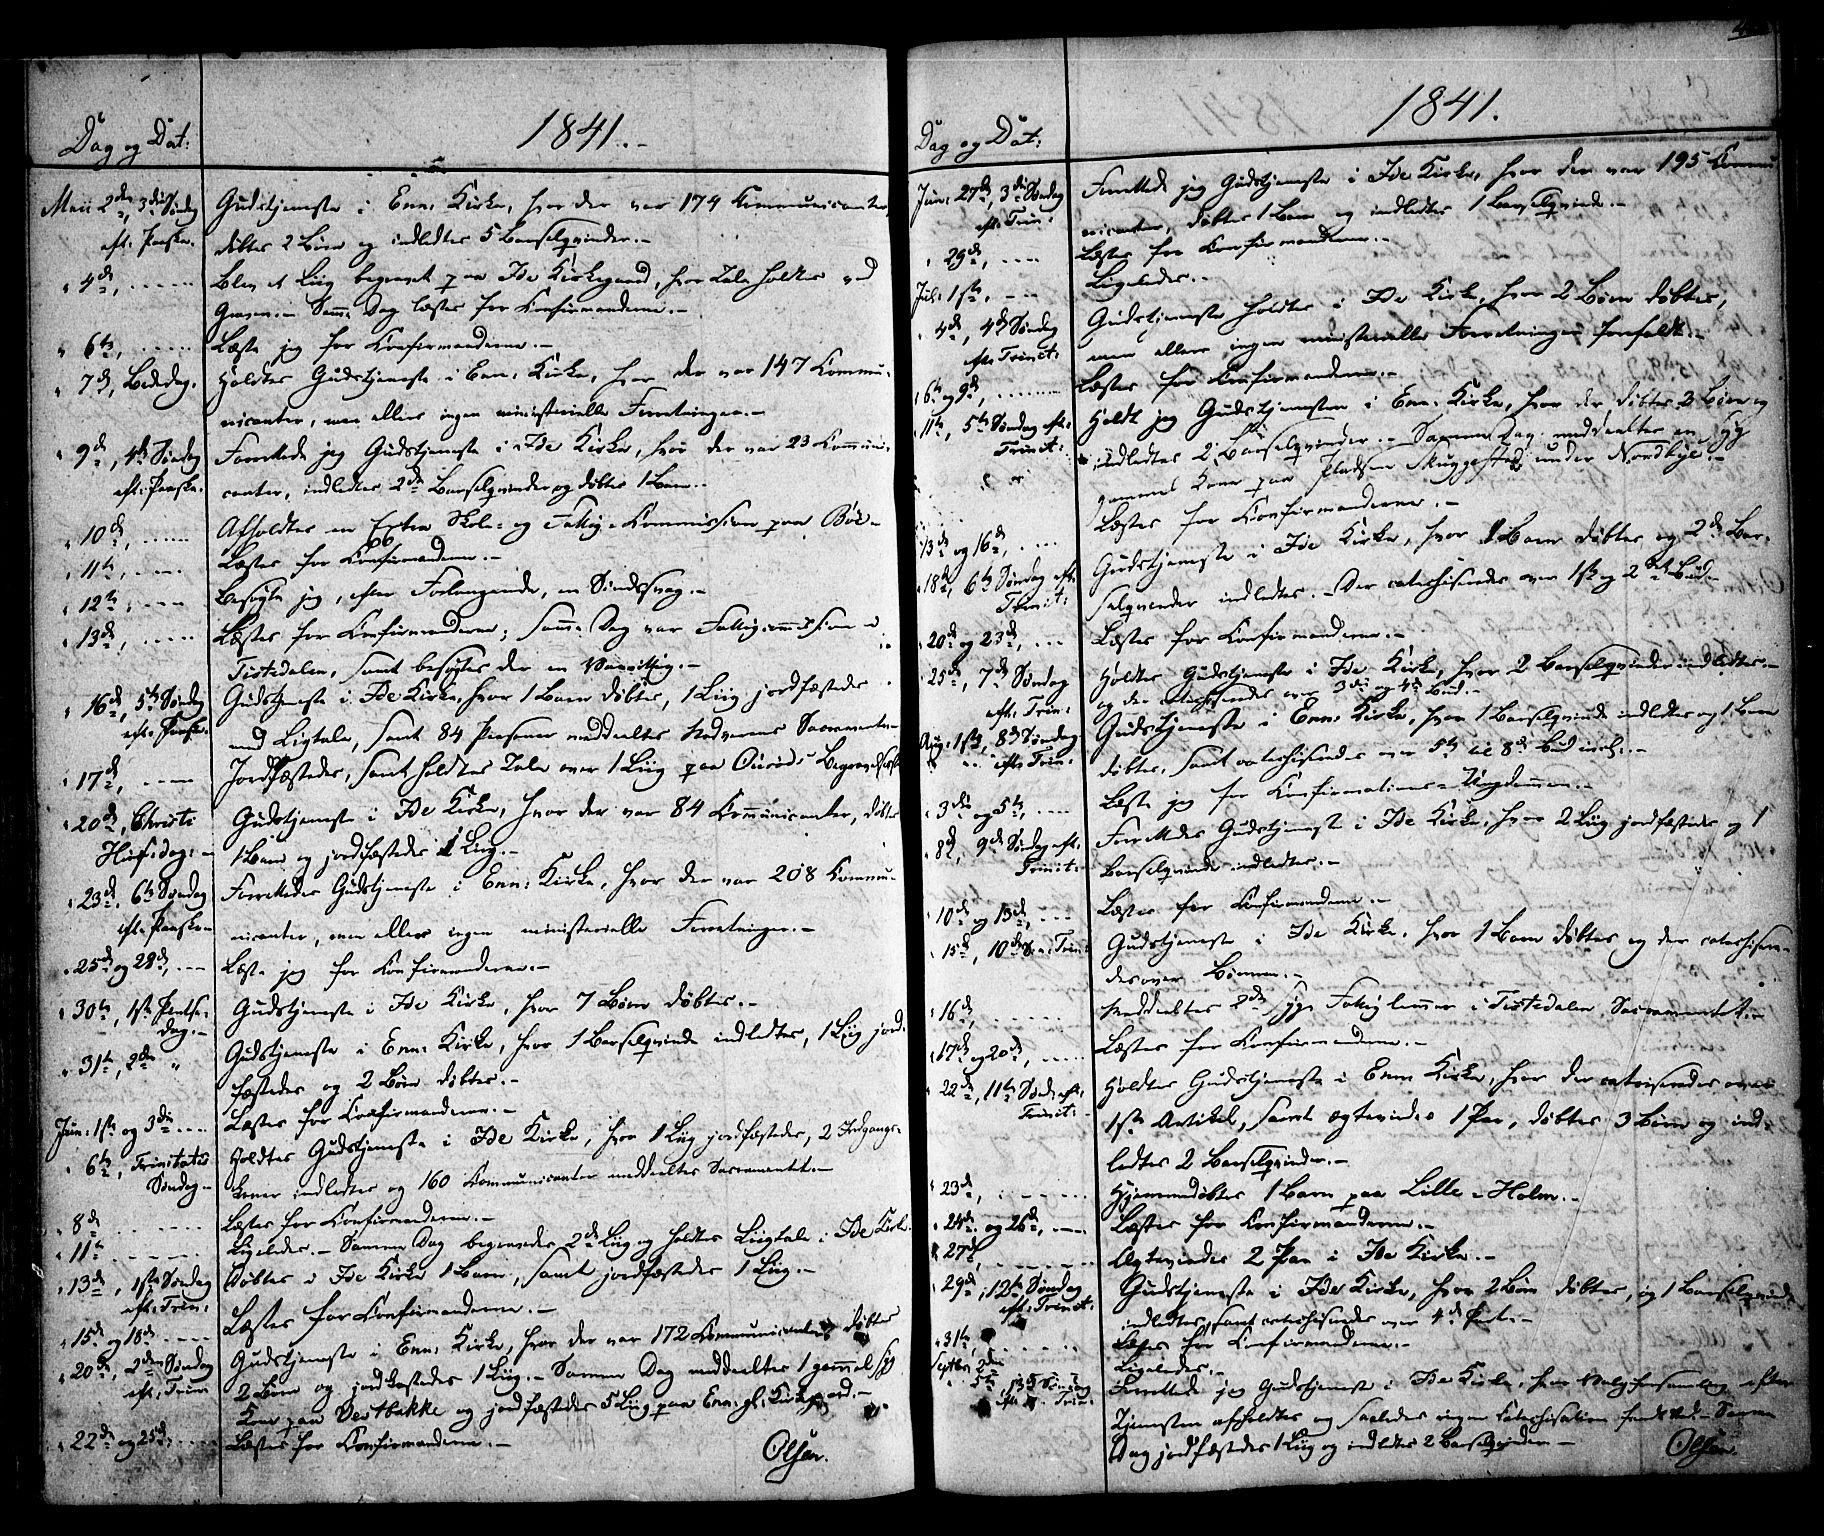 1841.
Dag og Dat:
Maii 2den, 3die Søndag eft: Paaske. Gudstjeneste i Enn: Kirke, hvor der var 174 Communicanter,
døbtes 2 Børn og indledtes 5 Barselqvinder.
" 4de, Blev et Liig begravet paa Idde Kirkegaard, hvor Tale holdtes ved
Graven. Samme Dag læstes for Confirmanderne.
" 6te, Læste jeg for Confirmanderne.
" 7de, Bededag. Holdtes Gudstjeneste i Enn: Kirke, hvor der var 147 Commu-
nicanter, men ellers ingen ministerielle Forretninger.
" 9de, 4de Søndag eft: Paaske. Forrettede jeg Gudstjeneste i Idde Kirke, hvor der var 23 Communi-
canter, indledtes 2de Barselqvinder og døbtes 1 Barn.
" 10de, Afholdtes en Extra Skole- og Fattig-Commission paa Böe
" 11te, Læstes for Confirmanderne.
" 12te, Besøgte jeg, efter Forlangende, en Sindssvag.
" 13de, Læstes for Confirmanderne; samme Dag var Fattigcommission i
Tistedalen, samt besøgtes der en Vanvittig.
" 16de, 5te Søndag eft: Paaske. Gudstjeneste i Idde Kirke, hvor 1 Barn døbtes, 1 Liig jordfæstedes
med Ligtale, samt 84 Personer meddeeltes Nadverens Sacramente.
" 17de, Jordfæstedes, samt holdtes Tale over 1 Liig paa
" 20de, Christi Himfdag. Gudstjeneste i Idde Kirke, hvor der var 84 Communicanter, døbtes
1 Barn og jordfæstedes 1 Liig.
" 23de, 6te Søndag eft: Paaske Forrettedes Gudstjeneste i Enn: Kirke, hvor der var 208 Commu-
nicanter, men ellers ingen ministerielle Forretninger.
" 25de og 28de, Læste jeg for Confirmanderne.
" 30te, 1ste Pintse-dag. Gudstjeneste i Idde Kirke, hvor 7 Børn døbtes.
" 31te, 2den " Gudstjeneste i Enn: Kirke, hvor 1 Barselqvinde indledtes, 1 Liig jord-
fæstedes og 2 Børn døbtes.
Jun: 1ste og 3die Læstes for Confirmanderne.
" 6te, Trinitatis Søndag Holdtes Gudstjeneste i Idde Kirke, hvor 1 Liig jordfæstedes, 2 Indgangs-
koner indledtes og 160 Communicanter meddeeltes Sacramentet.
" 8de Læstes for Confirmanderne.
" 11te Ligeledes. Samme Dag begravedes 2de Liig og holdtes Liigtale i Idde Kirke.
" 13de, 1ste Søndag eft: Trin: Døbtes i Idde Kirke 1 Barn, samt jordfæstedes 1 Liig.
" 15de og 18de Læstes for Confirmanderne.
" 20de, 2den Søndag eft: Trin: Gudstjeneste i Enn: Kirke, hvor der var 172 Communicanter, døbtes
2 Børn og jordfæstedes 1 Liig. Samme Dag meddeeltes 1 gammel syg
Kone paa Vestbakke og jordfæstedes 5 Liig paa Enn: gl: Kirkegaard.
" 22de og 25de, Læstes for Confirmanderne.
Olsen.
1841.
Dag og Dat:
Jun: 27de, 3die Søndag eft: Trin: Forrettede jeg Gudstjeneste i Idde Kirke, hvor der var 195 Commu
nicanter, døbtes 1 Barn og indledtes 1 Barselqvinde.
" 29de, Læstes for Confirmanderne.
Jul: 1ste, Ligeledes.
" 4de, 4de Søndag eft: Trinit: Gudstjeneste holdtes i Idde Kirke, hvor 2 Børn døbtes,
men ellers ingen ministerielle Forretninger forefaldt.
" 6te og 9de, Læstes for Confirmanderne.
" 11te, 5te Søndag eft: Trinit: Holdt jeg Gudstjenesten i Enn: Kirke, hvor der døbtes 3 Børn og
indledtes 2 Barselqvinder. Samme Dag meddeeltes en syg
gammel Kone paa Pladsen Skuggestad under Nordbye.
Læstes for Confirmanderne.
13de og 16de,
" 18de, 6te Søndag eft: Trinit: Gudstjeneste i Idde Kirke, hvor 1 Barn døbtes og 2de Bar-
selqvinder indledtes. Der catechiseredes over 1ste og 2det Bud.
" 20de og 23de, Læstes for Confirmanderne.
" 25de, 7de Søndag eft: Trin: Holdtes Gudstjeneste i Idde Kirke, hvor 2 Barselqvinder indledtes
og der catechiseredes over 3die og 4de Bud.
Aug: 1ste, 8de Søndag eft: Trin: Gudstjeneste i Enn: Kirke, hvor 1 Barselqvinde indledtes og 1 Barn
døbtes, samt catechiseredes over 5te til 8de Bud incl:
" 3die og 5te, Læste jeg for Confirmations-Ungdommen.
" 8de, 9de Søndag eft: Trinit: Forrettedes Gudstjeneste i Idde Kirke, hvor 2 Liig jordfæstedes og 1
Barselqvinde indledtes.
" 10de og 13de, Læstes for Confirmanderne.
" 15de, 10de S. e. Trinit: Gudstjeneste i Idde Kirke, hvor 1 Barn døbtes og der catechisere-
des over Bønnen.
" 16de, Meddeeltes 2de syge Fattiglemmer i Tistedalen Sacramentet.
" 17de og 20de, Læstes for Confirmanderne.
" 22de, 11te Sønd: eft: Trinit: Holdtes Gudstjeneste i Enn: Kirke, hvor der catechiseredes over
1ste Artikel, samt ægteviedes 1 Par, døbtes 3 Børn og ind-
ledtes 2 Barselqvinder.
" 23de, Hjemmedøbtes 1 Barn paa Lille-Holm.
" 24de og 26de, Læstes for Confirmanderne.
" 27de, Ægteviedes 2 Par i Idde Kirke.
" 29de, 12te Søndag eft: Trinit: Gudstjeneste i Idde Kirke, hvor 2 Børn døbtes, og 1 Barselqvinde
indledtes, samt catechiseredes over 4de Part.
" 31te, Læstes for Confirmanderne.
Septbr: 2den Ligeledes.
" 5te, 13de Søndag eft: Trinit: Forrettede jeg Gudstjeneste i Idde Kirke, hvor Valgforsamling efter
Tjenesten afholdtes og saaledes ingen Catechisation fandt Sted. Samme
Dag jordfæstedes 1 Liig og indledtes 2 Barselqvinder.
Olsen.